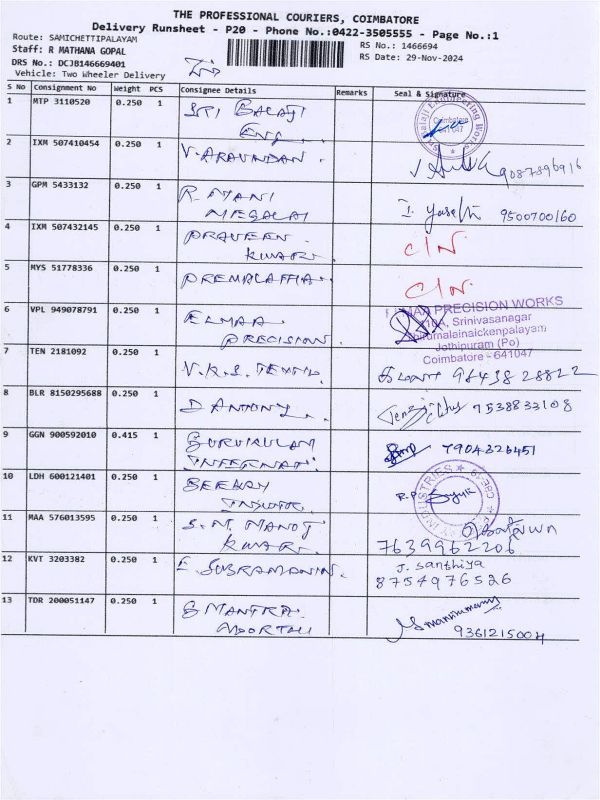 THE PROFESSIONAL COURIERS, COIMBATORE
Delivery Runsheet - P20 - Phone No.:0422-3505555 - Page No.:1
Route: SAMICHETTIPALAYAM
RS No.: 1466694
Staff: R MATHANA GOPAL
RS Date: 29-Nov-2024
DRS No.: DCJB146669401
Vehicle: Two Wheeler Delivery
S No Consignment No Weight PCS Consignee Details Remarks Seal & Signature
1 MTP 3110520 0.250 1 SRI BALAJI
Eng.
Balaji Engineering Works
Coimbatore
641 047
2 IXM 507410454 0.250 1 V. ARAVINDAN.
9087896916
3 GPM 5433132 0.250 1
MEGALAI
9500700160
4 IXM 507432145 0.250 1 PRAVEEN
KUMAR.
C/N.
5 MYS 51778336 0.250 1 PREMALATHA.
C/N.
6 VPL 949078791 0.250 1 ELMAA
PRECISION.
PRECISION WORKS
Srinivasanagar
Thirumalainaickenpalayam
Jothipuram (Po)
Coimbatore - 641047
7 TEN 2181092 0.250 1 V.K.S. TEXTIL
96438 28822
8 BLR 8150295688 0.250 1 D ANTONY.
9538833108
9 GGN 900592010 0.415 1
7904326451
10 LDH 600121401 0.250 1
R.P
INDUSTRIES
11 MAA 576013595 0.250 1 S.M. MANOJ
KUMAR.
7639962206
12 KVT 3203382 0.250 1 E. SUBRAMANIN.
J. Santhiya
8754976526
13 TDR 200051147 0.250 1
9361215004